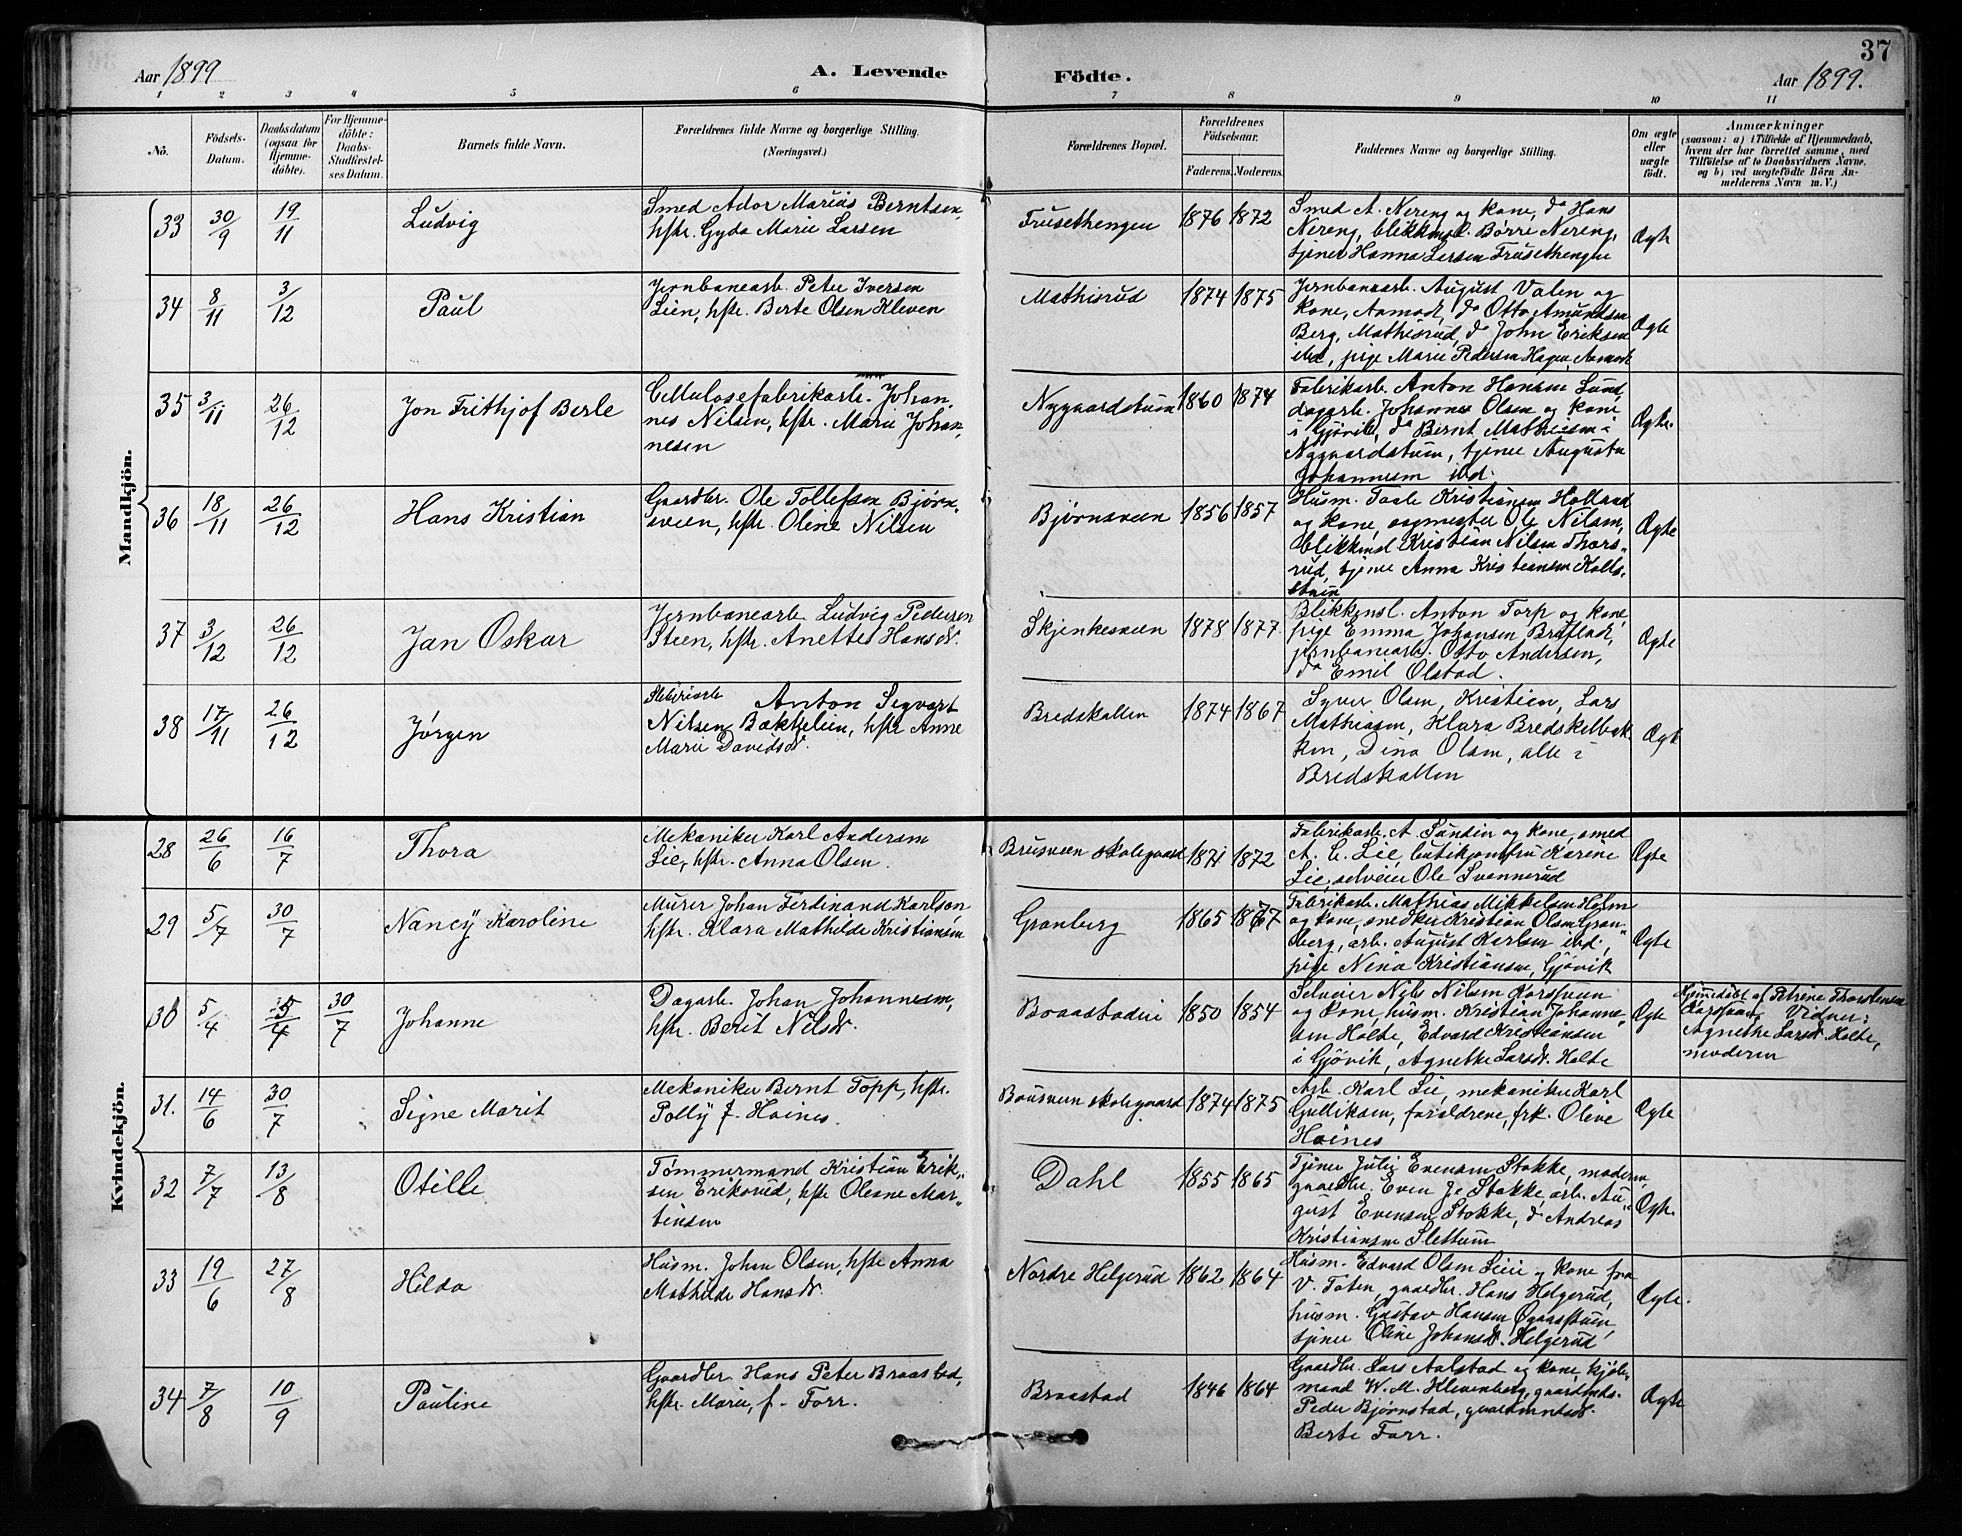 37
Aar 1899
A. Levende
Födte.
Aar 1899.
1 2 3 4 5 6 7 8 9 10 11
No.
Födsels-Datum.
Daabsdatum (ogsaa for Hjemme-döbte).
For Hjemme-döbte: Daabs-Stadfæstel-ses Datum.
Barnets fulde Navn.
Forældrenes fulde Navne og borgerlige Stilling.
(Næringsvei.)
Forældrenes Bopæl.
Forældrenes Födselsaar.
Faderens. Moderens.
Faddernes Navne og borgerlige Stilling.
Om ægte eller uægte födt.
Anmærkninger
(saasom: a) i Tilfælde af Hjemmedaab,
hvem der har forrettet samme, med
Tilföielse af to Daabsvidners Navne.
og b) ved uægtefödte Börn An-
melderens Navn m. V.)
Mandkjön.
33 30/9 19/11 Ludvig
Smed Ador Marius Berntsen,
hstr. Gyda Marie Larsen
Frusethengen 1876 1872
Smed A. Nereng og kone, do Hans
Nereng, blikkensl. Børre Nereng,
tjener Hanna Larsen Frusethengen
Ægte
34 8/11 3/12 Paul
Jernbanearb. Peter Iversen
Lien, hstr. Berte Olsen Kleven
Mathisrud 1874 1875
Jernbanearb. August Valen og
kone, Aamodt, do Otto Amundsen
Berg, Mathisrud, do John Eriksen
ibd, pige Marie Pedersen Hagen, Aamodt
Ægte
35 3/11 26/12 Jon Frithjof Berle
Cellulosefabrikarb. Johan-
nes Nilsen, hstr. Marie Johan-
nesen
Nygaardstuen 1860 1874
Fabrikarb. Anton Hansen Lund,
dagarb. Johannes Olsen og kone
i Gjøvik, do Bernt Mathiesen i
Nygaardstuen, tjener Augusta
Johannesen ibd.
Ægte.
36 18/11 26/12 Hans Kristian
Gaardbr. Ole Tollefsen Bjørn-
sveen, hstr. Olene Nilsen
Bjørnsveen 1856 1857
Husm. Taale Kristiansen
og kone, sagmester Ole Nilsen,
blikkensl Kristian Nilsen Thors-
rud, tjener Anna Kristiansen Kolls-
stuen
Ægte
37 3/12 26/12 Jan Oskar
Jernbanearb Ludvig Pedersen
Steen, hstr. Anette Hansdr.
Skjenkesveen 1878 1877.
Blikkensl. Anton Torp og kone,
pige Emma Johansen Bratlad,
jernbanearb. Otto Andersen,
do Emil Olstad.
Ægte
38 17/11 26/12 Jørgen
Sliberiarb Anton Segvart
Nilsen Bækkelien, hstr Anne
Marie Davidsdr.
Bredskallen 1874 1867
Syver Olsen, Kristien, Lars
Mathiasen, Klara Bredskelbak-
ken, Dina Olsen, alle i
Bredskallen
Ægte
Kvindekjön.
28 26/6 16/7 Thora
Mekaniker Karl Andersen
Lie, hstr. Anna Olsen.
Brusveen skolegaard 1871 1872
Fabrikarb. A. Sundin og kone, smed
A. C. Lie, butikjomfru Karine
Lie, selveier Ole Svennerud
Ægte
29 5/7 30/7 Nancÿ Karoline
Murer Johan Ferdinand Karlsen
hstr. Klara Mathilde Kristiansen
Granberg 1865 1867
Fabrikarb. Mathias Mikkelsen Holm
og kone, snedker Kristian Olsen Gran-
berg, arb. August Karlsen ibd.,
pige Nina Kristiansen, Gjøvik
Ægte
30 5/4 5/4 30/7 Johanne
Dagarb. Johan Johannesen,
hstr. Berit Nilsdr.
Braastadeie 1850 1854
Selveier Nils Nilsen Korsveen
og kone, husm. Kristian Johanne-
sen Holte, Edvard Kristiansen
i Gjøvik, Agnethe Larsdr. Holte
Ægte
Hjemedøbt af Petrine Thorstensen
Korsveen. Vidner:
Agnethe Larsdr. Holte,
moderen
31. 14/6 30/7 Signe Marit
Mekaniker Bernt Topp, hstr.
Pollÿ f. Haines.
Brusveen skolegaard 1874 1875
Arb. Karl Lie, mekaniker Karl
Gulliksen, forældrene, frk. Olive
Haines
Ægte
32 7/7 13/8 Otille
Tømmermand Kristian Erik-
sen Eriksrud, hstr Olesne Mar-
tinsen
Dahl 1855 1865
Tjener Julie Evensen Stokke, moderen,
gaardbr. Even J. Stokke, arb. Au-
gust Evensen Stokke, do Andreas
Kristiansen Slettum
Ægte.
33 19/6 27/8 Hilda
Husm. Johan Olsen, hstr Anna
Mathilde Hansdr.
Nordre Helgerud 1862 1864
Husm. Edvard Olsen Lieie og kone fra
V. Toten, gaardbr. Hans Helgerud,
husm. Gustav Hansen Øgaardstuen,
tjener Oline Johansdr. Helgerud
Ægte.
34 7/8 10/9 Pauline
Gaardbr Hans Peter Braastad,
hstr. Marie, f. Forr.
Braastad 1846 1864
Gaardbr. Lars Aalstad og kone, kjøb-
mand W. M. Klevenberg, gaardmds.
Peder Bjørnstad, gaardmandsdr.
Berte Farr.
Ægte